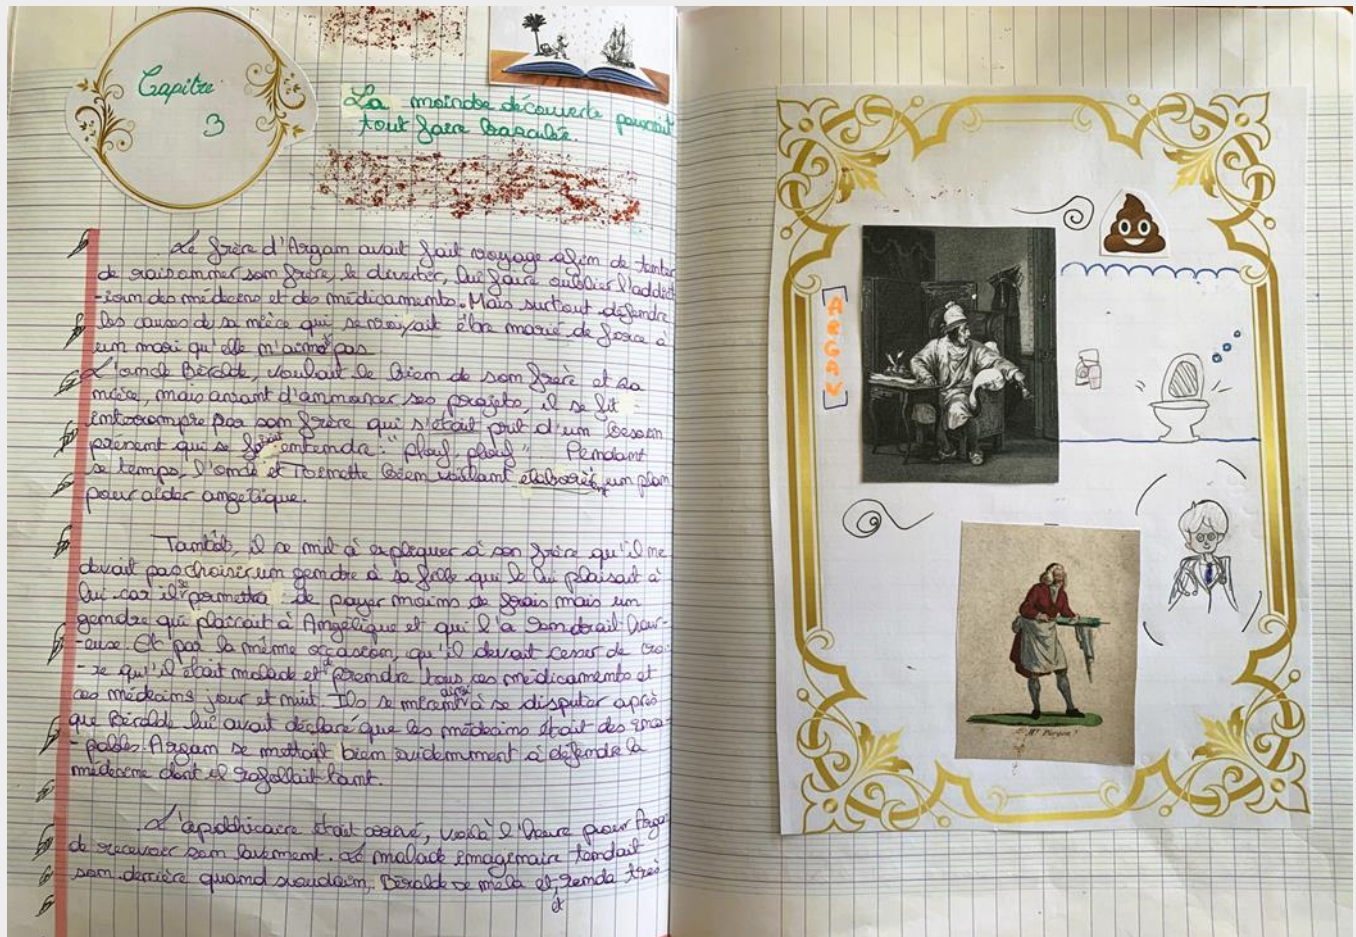 Capitre
3
La moindre découverte pourrait
tout faire basculée.
Le frère d'Argan avait fait voyage afin de tenter
de raisonner son frère, le divertir, lui faire oublier l'addict
-ion des médecins et des médicaments. Mais surtout défendre
les causes de sa nièce qui se voyait être marié de force à
un mari qu'elle n'aime pas
L'oncle Béralde, voulait le bien de son frère et sa
nièce, mais avant d'annoncer ses projets, il se fit
interrompre par son frère qui s'était prit d'un besoin
présent qui se faisait entendre : "plouf plouf" Pendant
se temps, l'oncle et Toinette bien veillant élaborèrent un plan
pour aider angélique.
Tantôt, il se mit à expliquer à son frère qu'il ne
devait pas choisir un gendre à sa fille qui le lui plaisait à
lui car il se permettra de payer moins de frais mais un
gendre qui plairait à Angélique et qui l'a rendrait heur-
-euse. Et par la même occasion, qu'il devait cesser de croi-
-re qu'il était malade et de prendre tous ces médicaments et
ces médecins jour et nuit. Ils se mirent ainsi à se disputer après
que Béralde lui avait déclaré que les médecins était des inca-
-pables. Argan se mettait bien evidemment à défendre la
médecine dont il rafollait tant.
L'apothicaire était arrivé, voilà l'heure pour Argan
de recevoir son lavement. Le malade imaginaire tendait
son derrière quand soudain, Béralde se mela et renda très
et
ARGAN
Mr. Purgon